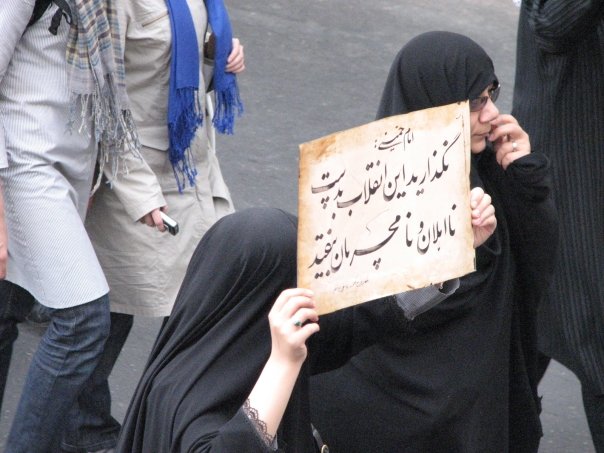 امام خمینی:
نگذارید این انقلاب بدست
نااهلان و نامحرمان بیفتد